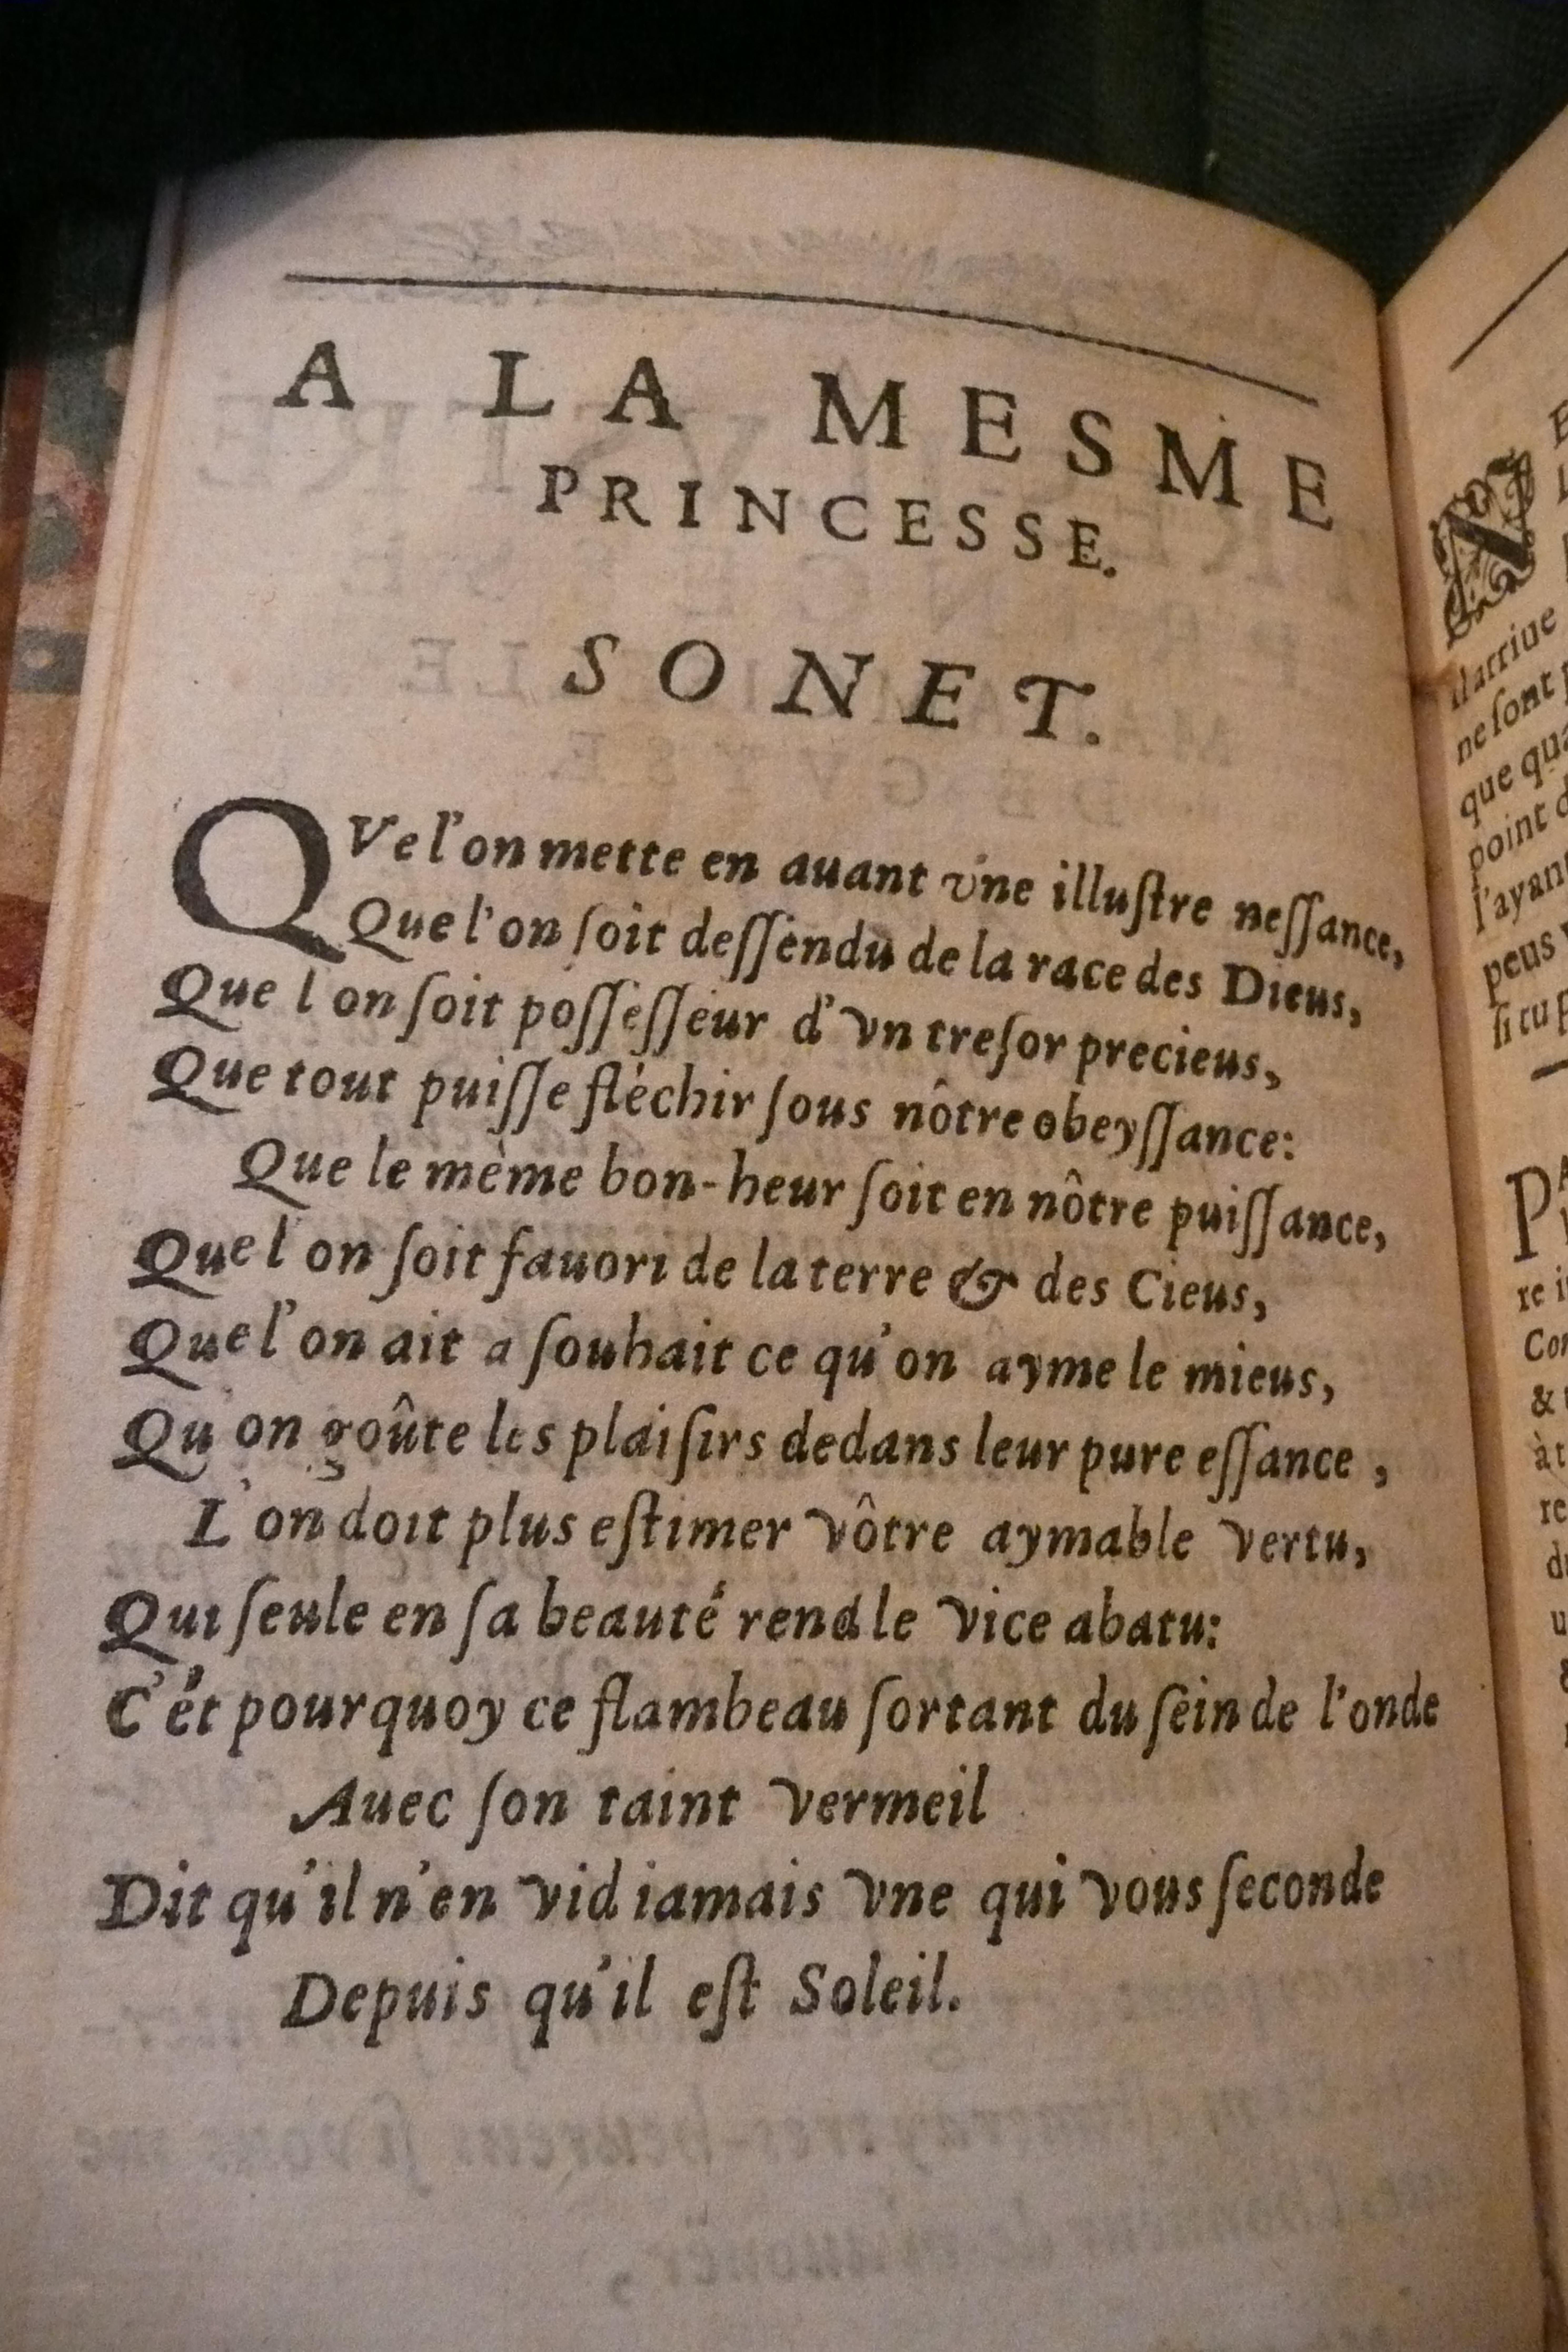 A LA MESME
PRINCESSE.
SONET.
QVe l'on mette en auant vne illuſtre neſſance,
Que l'on ſoit deſſendu de la race des Dieus,
Que l on ſoit poſſeſſeur d'vn treſor precieus,
Que tout puiſſe fléchir ſous nôtre obeyſſance:
Que le mème bon-heur ſoit en nôtre puiſſance,
Que l'on ſoit fauori de la terre & des Cieus,
Que l'on ait a ſouhait ce qu'on ayme le mieus,
Qu'on goûte les plaiſirs dedans leur pure eſſance,
L'on doit plus eſtimer vôtre aymable vertu,
Qui ſeule en ſa beauté rend le vice abatu:
C'ét pourquoy ce flambeau ſortant du ſein de l'onde
Auec ſon taint vermeil
Dit qu'il n'en vid iamais vne qui vous ſeconde
Depuis qu'il eſt Soleil.
N
il arriue
ne ſont
que
point
l'ayant
peus
ſi tu
PA
re
&
à
re